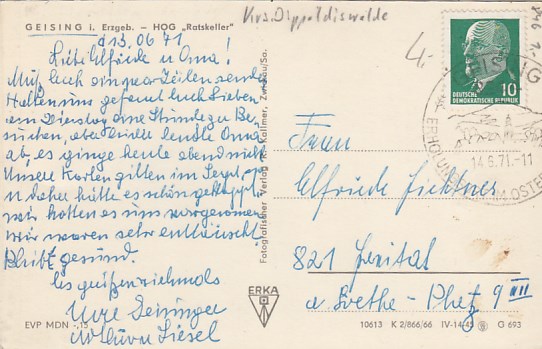 GEISING i. Erzgeb. – HOG „Ratskeller"
Krs. Dippoldiswalde
4,-
d 13.06 71
Liebe Elfriede u Oma!
Muß Euch ein paar Zeilen senden
Hatten uns gefreut Euch Lieben
am Dienstag eine Stunde zu Be
suchen, aber Winler lehnte Oma
ab, es ginge heute abend nicht
Unsere Karten gelten im
u daher hätte es schön geklappt
wir hatten es uns vorgenommen
wir waren sehr enttäuscht
Bleibt gesund.
Es grüßen nochmals
Eure
u Liesel
EVP MDN -,15
Fotografischer Verlag R. Kallmer, Zwickau/Sa.
ERKA
DEUTSCHE
DEMOKRATISCHE REPUBLIK
10
GEISING
14.6.71.-11
Frau
Elfriede Fichtner
821 Freital
a Goethe-Platz 9 III
10613 K 2/866/66 IV-14-45 G 693